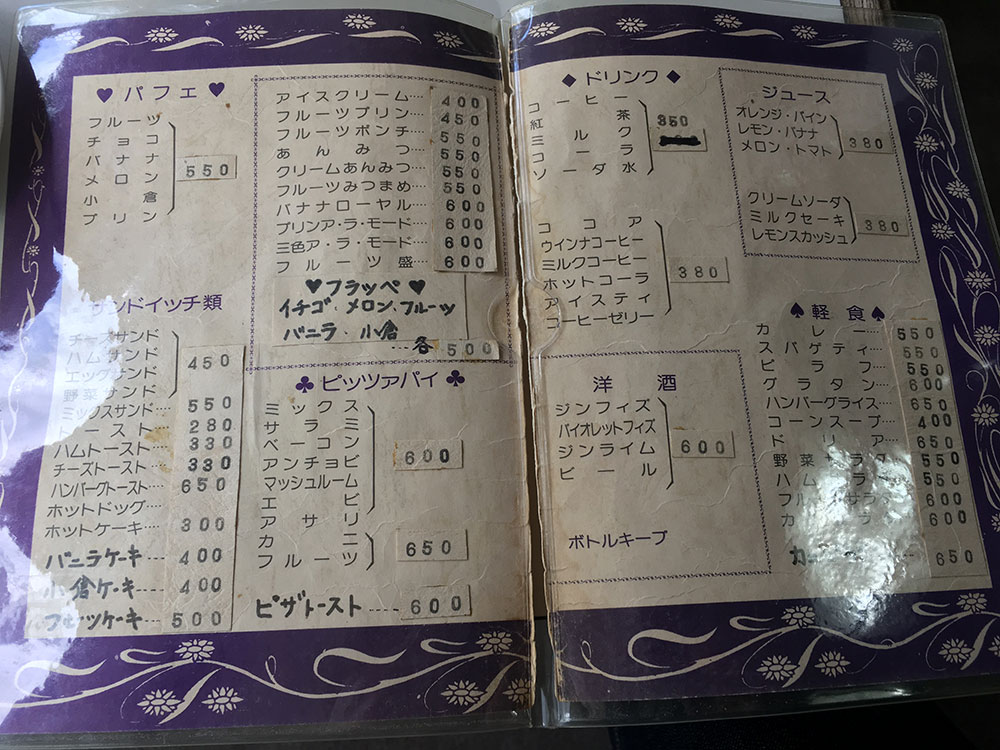 ♥ パフェ ♥
フルーツ
チョコ
バナナ
メロン
小倉
プリン
550
アイスクリーム… 400
フルーツプリン… 450
フルーツポンチ… 550
あんみつ… 550
クリームあんみつ… 550
フルーツみつまめ… 550
バナナローヤル… 600
プリンア・ラ・モード… 600
三色ア・ラ・モード… 600
フルーツ盛… 600
♥フラッペ♥
イチゴ、メロン、フルーツ
バニラ、小倉
各 500
サンドイッチ類
チーズサンド
ハムサンド
エッグサンド
野菜サンド
450
ミックスサンド 550
トースト… 280
ハムトースト… 330
チーズトースト… 330
ハンバーグトースト… 650
ホットドッグ…
ホットケーキ… 300
バニラケーキ… 400
小倉ケーキ… 400
フルーツケーキ… 500
♣ ピッツァパイ ♣
ミックス
サラミ
ベーコン
アンチョビ
マッシュルーム
エビ
600
アサリ
カニ
フルーツ
650
ピザトースト… 600
◆ ドリンク ◆
コーヒー
紅茶
ミルク
コーラ
ソーダ水
350
ココア
ウインナコーヒー
ミルクコーヒー
ホットコーラ
アイスティ
コーヒーゼリー
380
ジュース
オレンジ・パイン
レモン・バナナ
メロン・トマト
380
クリームソーダ
ミルクセーキ
レモンスカッシュ
380
洋酒
ジンフィズ
バイオレットフィズ
ジンライム
ビール
600
ボトルキープ
♠ 軽食 ♠
カレー… 550
スパゲティ… 550
ピラフ… 550
グラタン… 600
ハンバーグライス… 650
コーンスープ… 400
ドリア… 650
野菜サラダ 550
ハム 550
フルーツサラダ 600
600
650